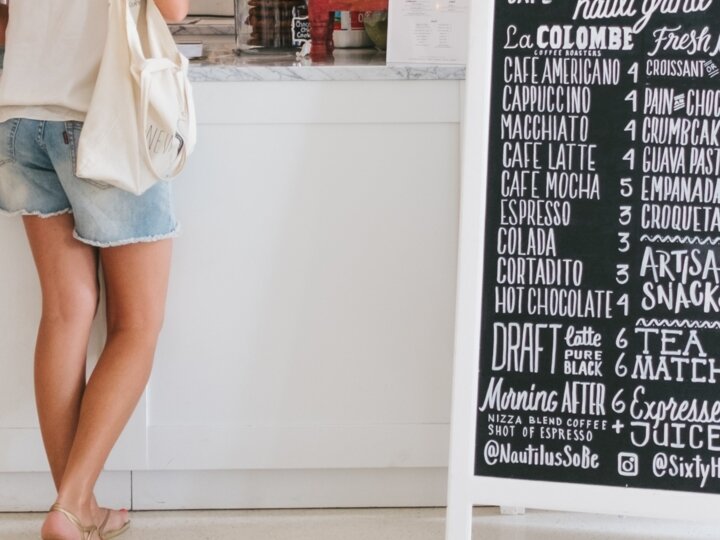 CAFE
La COLOMBE
COFFEE ROASTERS
CAFE AMERICANO 4
CAPPUCCINO 4
MACCHIATO 4
CAFE LATTE 4
CAFE MOCHA 5
ESPRESSO 3
COLADA 3
CORTADITO 3
HOT CHOCOLATE 4
DRAFT latte 6
PURE BLACK 6
Morning AFTER 6
NIZZA BLEND COFFEE +
SHOT OF ESPRESSO
@NautilusSoBe
Fresh
CROISSANT
PAIN
CRUMBCAK
GUAVA PAST
EMPANADA
CROQUETA
ARTISA
SNACK
TEA
MATCH
Expresse
JUICE
@SixtyH
NEW